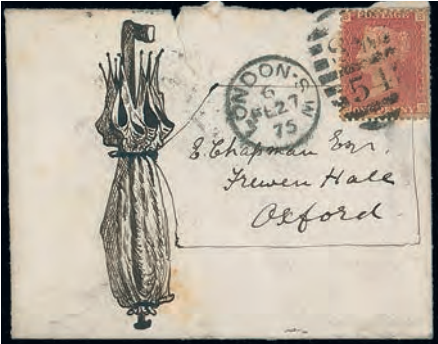 POSTAGE
LONDON·S.W
6
FE27
75
54
E. Chapman Esq.
Frewen Hall
Oxford.